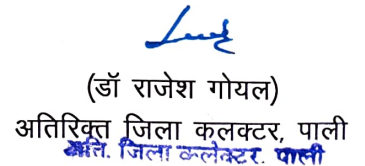 (डॉ राजेश गोयल)
अतिरिक्त जिला कलक्टर, पाली
अति. जिला कलेक्टर. पाली